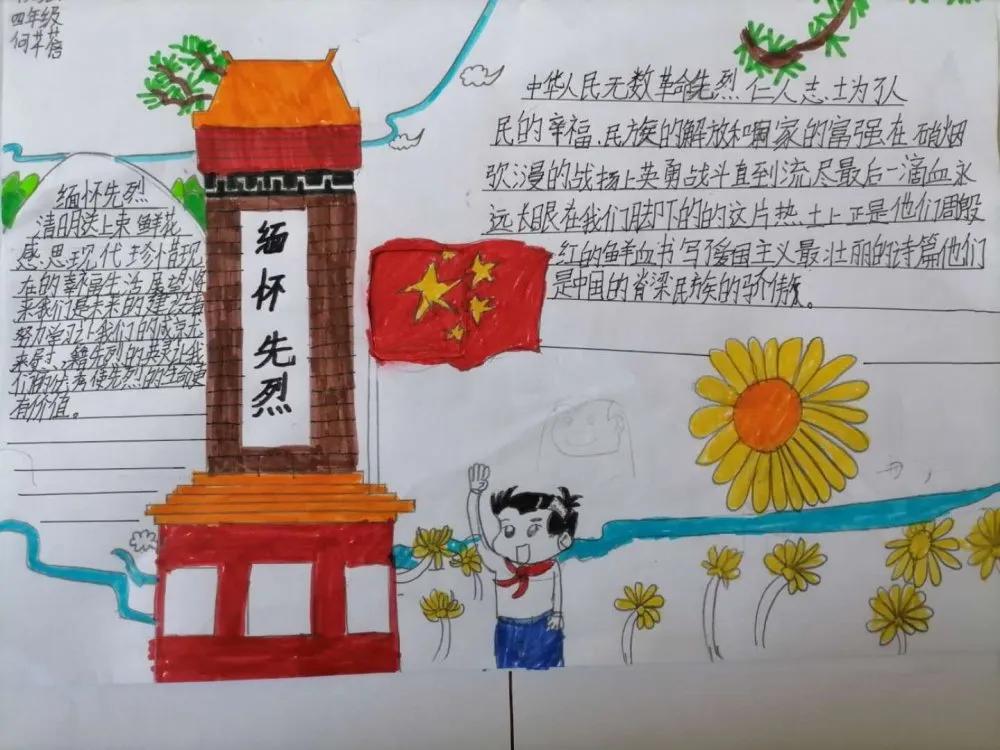 四年级
何芊蓓
缅怀先烈
清明送上束鲜花
感思现代珍惜现
在的幸福生活展望将
来我们是未来的建设者
努力学习让我们的成京尤
来展寸、藉先烈的英灵让我
们的 使先烈的生命更
有价值。
缅怀先烈
中华人民无数革命先烈仁人志士为了人
民的幸福、民族的解放和国家的富强在硝烟
弥漫的战扬上英勇战斗直到流尽最后一滴血永
远长眼在我们脚下的的这片热土上正是他们用殷
红的鲜血书写了爱国主义最壮丽的诗篇他们
是中国的脊梁民族的骄傲。